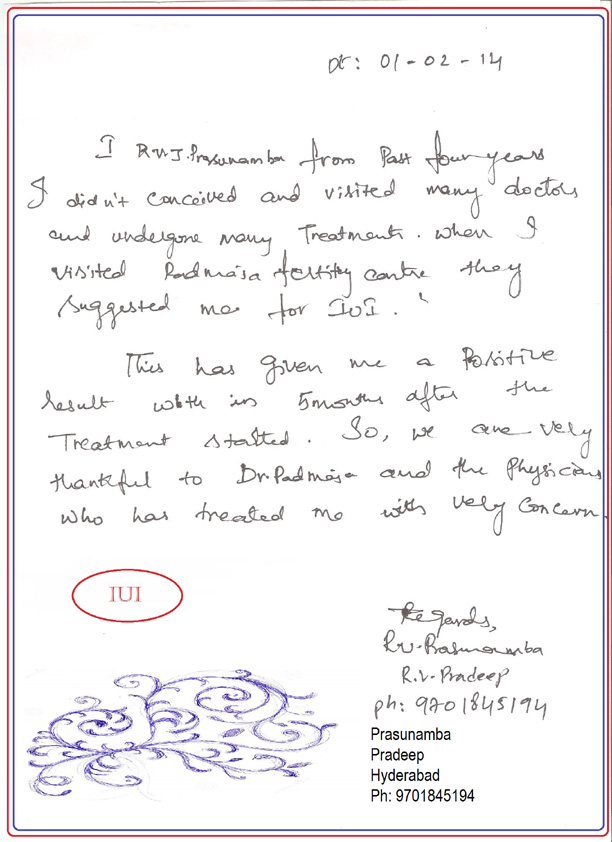 Dt: 01-02-14
I R.V.J. Prasunamba from Past four years
I didn't conceived and visited many doctors
and undergone many Treatments. when I
visited Padmaja fertility centre they
suggested me for IUI.
This has given me a Positive
result with in 5months after the
Treatment started. So, we are very
thankful to Dr. Padmaja and the Physicians
who has treated me with very concern.
IUI
Regards,
R.V. Prasunamba
R.V. Pradeep
ph: 9701845194
Prasunamba
Pradeep
Hyderabad
Ph: 9701845194